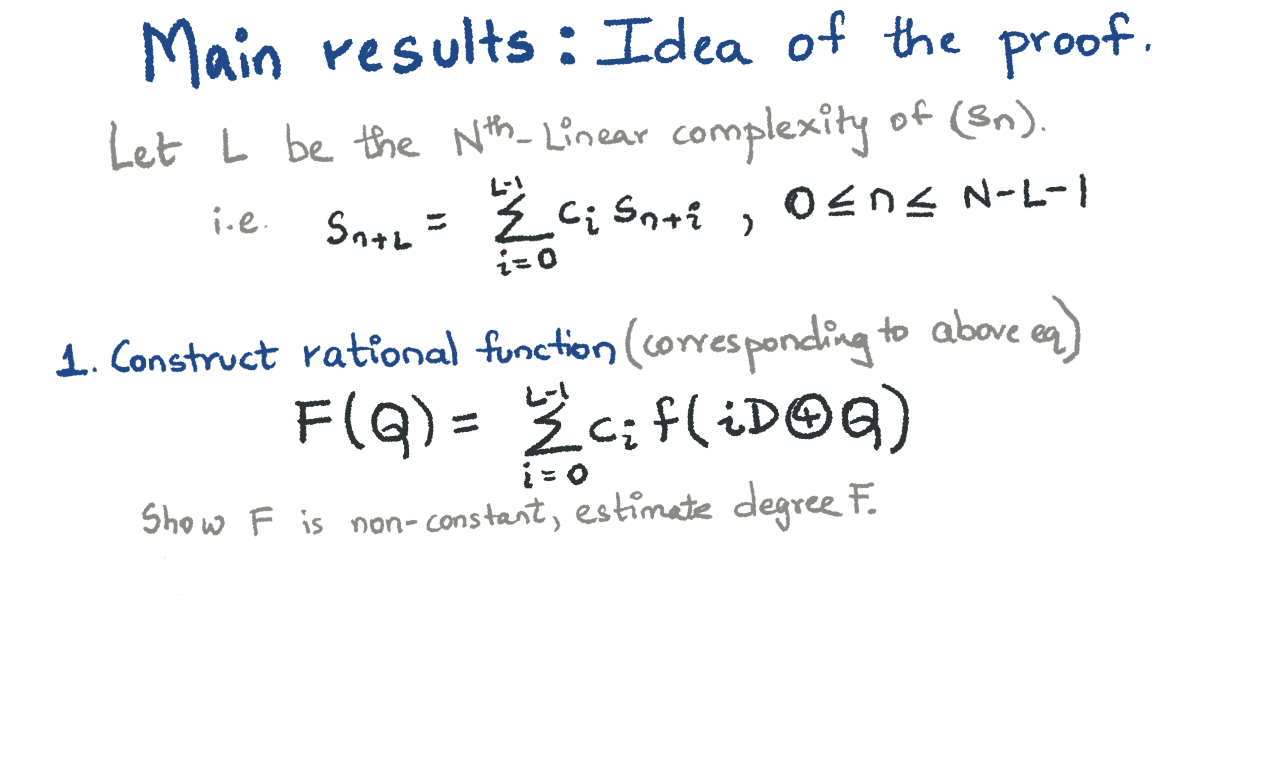 Main results: Idea of the proof.
Let L be the Nth-Linear complexity of (Sn).
i.e. S_{n+L} = \sum_{i=0}^{L-1} c_i S_{n+i} , 0 ≤ n ≤ N-L-1
1. Construct rational function (corresponding to above eq)
F(Q) = \sum_{i=0}^{L-1} c_i f(iD⊕Q)
Show F is non-constant, estimate degree F.